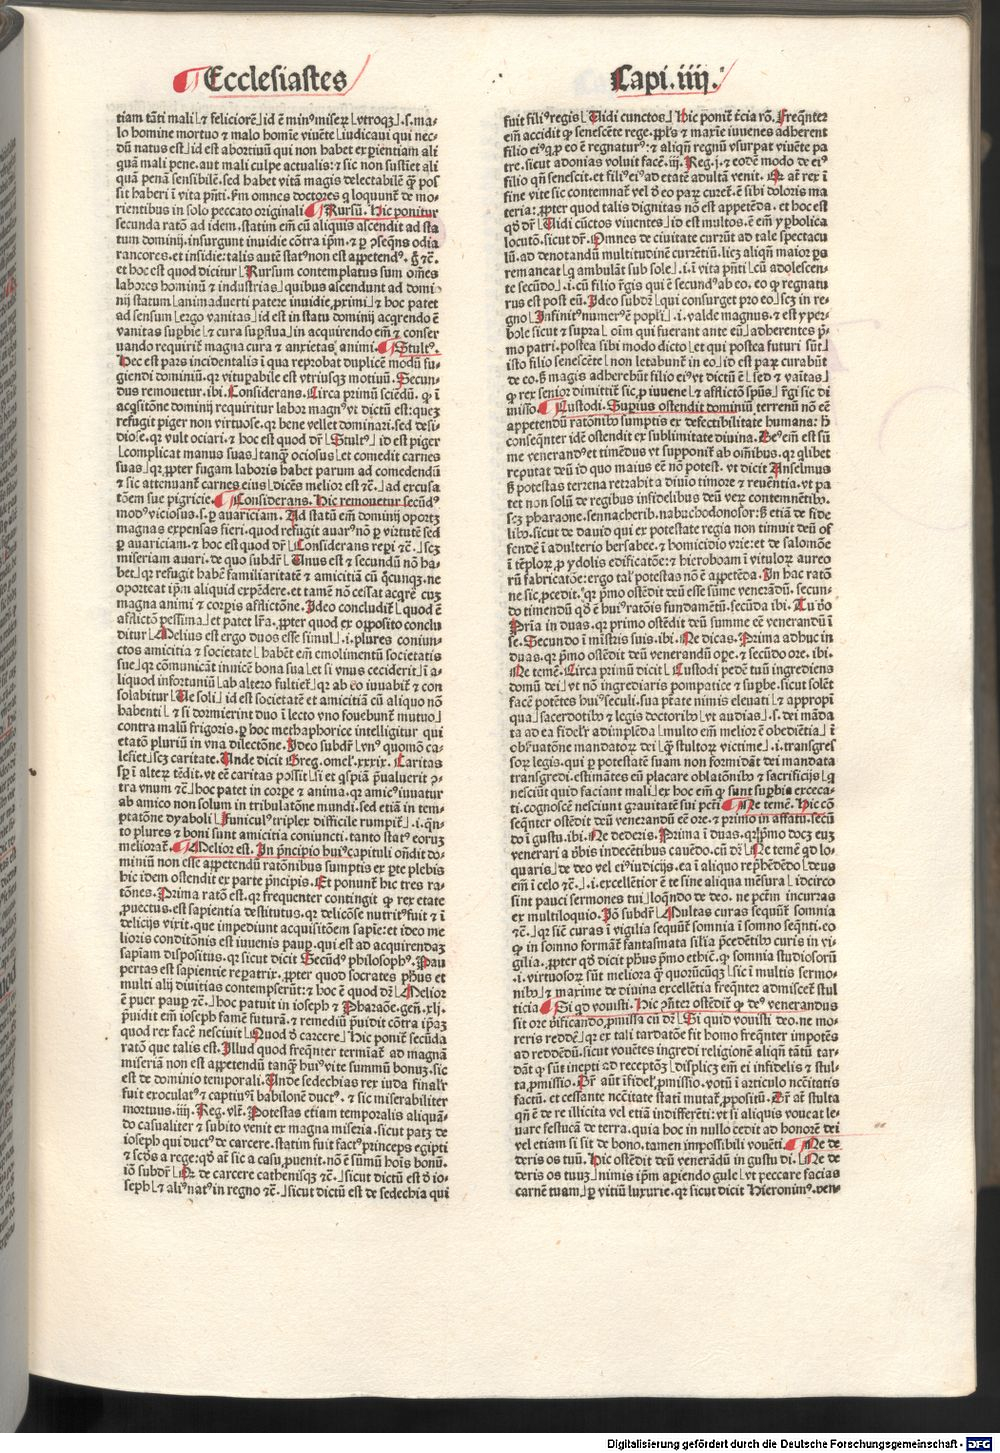 Ecclesiastes
tiam tāti mali⌊⁊ feliciorē⌋id ē minꝰ miseꝝ⌊vtroqꝫ⌋.s.ma-
lo homine mortuo ⁊ malo homīe viuēte⌊iudicaui qui nec-
dū natus est⌋id est abortiuū qui non habet exꝑientiam ali
quā mali pene.aut mali culpe actualis:⁊ sic non sustīet ali
quā penā sensibilē.sed habet vitā magis delectabilē ꝙ̄ pos
sit haberi ī vita pn̄ti.ßm omnes doctores q̄ loquunt̄ de mo-
rientibus in solo peccato originali ¶Rursū. Hic ponitur
secunda ratō ad idem.statim em̄ cū aliquis ascendit ad sta
tum dominij.insurgunt inuidie cōtra ip̄m.⁊ ꝑ ↄseqn̄s odia
rancores.et insidie:talis autē statꝰ non est appetendꝰ. g̊ ⁊c̄.
et hoc est quod dicitur⌊Rursum contemplatus sum om̄es
labores hominū ⁊ industrias⌋quibus ascendunt ad domi-
nij statum⌊animaduerti patere inuidie ꝓximi⌋⁊ hoc patet
ad sensum⌊ergo vanitas⌋id est in statu dominij acq̄rendo ē
vanitas suꝑbie⌊⁊ cura suꝑflua⌋in acquirendo em̄ ⁊ conser
uando requirit̄ magna cura ⁊ anxietas animi. ¶Stultꝰ.
Hoc est pars incidentalis ī qua reprobat duplicē modū fu-
giendi dominiū.qr vituꝑabile est vtriusqꝫ motiuū. Secun-
dus remouetur.ibi.Considerans.Circa primū sciēdū. ꝙ ī
acq̄sitōne dominij requiritur labor magnꝰ vt dictū est:queꝫ
refugit piger non virtuose.qr bene vellet dominari.sed desi-
diose.qr vult ociari.⁊ hoc est quod dr̄⌊Stultꝰ⌋id est piger
⌊complicat manus suas⌋tanqꝫ ociosus⌊et comedit carnes
suas⌋qr ꝓpter fugam laboris habet parum ad comedendū
⁊ sic attenuant̄ carnes eius⌊dicēs melior est ⁊c̄.⌋ad excusa
tōem sue pigricie. ¶Considerans. Hic remouetur secūdꝰ
modꝰ viciosus.s.ꝑ auariciam. Ad statū em̄ dominij oportꝫ
magnas expensas fieri.quod refugit auarꝰ nō ꝑ virtutē sed
ꝑ auariciam.⁊ hoc est quod dr̄⌊Considerans reꝑi ⁊c̄.⌋scꝫ
miseriam auari.de quo subdr̄⌊Unus est ⁊ secundū nō ha-
bet⌋qr refugit habē familiaritatē ⁊ amicitiā cū q̊cunqꝫ.ne
oporteat ip̄m aliquid expēdere.et tamē nō cessat acq̄rē cuꝫ
magna animi ⁊ corꝑis afflictōne.Ideo concludit̄⌊quod ē
afflictō pessima⌋et patet lr̄a.ꝓpter quod ex opposito conclu
ditur⌊Melius est ergo duos esse simul⌋.i.plures coniun-
ctos amicitia ⁊ societate⌊habēt em̄ emolimentū societatis
sue⌋qr cōmunicāt inuicē bona sua⌊et si vnus ceciderit⌋ī a-
liquod infortuniū⌊ab altero fultiet̄⌋qr ab eo iuuabit̄ ⁊ con
solabitur⌊Ue soli⌋id est societatē et amicitiā cū aliquo nō
habenti⌊⁊ si dormierint duo ī lecto vno fouebunt̄ mutuo⌋
contra malū frigoris.ꝑ hoc methaphorice intelligitur qui
etatō pluriū in vna dilectōne.Ideo subdr̄⌊vnꝰ quomō ca-
lefiet⌋scꝫ caritate.Unde dicit Greg.omel̓.xxxix. Caritas
sꝑ ī alteꝝ tēdit.vt eē caritas possit⌊si et qspiā p̄ualuerit ↄ-
tra vnum ⁊c̄⌋hoc patet in corꝑe ⁊ anima.qr amicꝰ iuuatur
ab amico non solum in tribulatōne mundi.sed etiā in tem-
ptatōne dyaboli⌊Funiculꝰ triplex difficile rumpit̄⌋.i.qn̄-
to plures ⁊ boni sunt amicitia coniuncti.tanto statꝰ eoruꝫ
meliorat̄. ¶Melior est. In p̄ncipio huiꝰ capituli ondit do-
miniū non esse appetendū ratōnibus sumptis ex ꝑte plebis
hic idem ostendit ex parte p̄ncipis.Et ponunt̄ hic tres ra-
tōnes.Prima ratō est.qr frequenter contingit ꝙ rex etate
ꝓuectus.est sapientia destitutus.qr deliciōse nutritꝰ fuit ⁊ ī
delicijs vixit.que impediunt acquisitōem sapīe:et ideo me
lioris conditōnis est iuuenis pauꝑ.qui est ad acquirendaꝫ
sapīam dispositus.qr sicut dicit Secūdꝰ philosophꝰ.Pau
pertas est sapientie reꝑatrix.ꝓpter quod socrates phūs et
multi alij diuitias contempserūt:⁊ hoc ē quod dr̄⌊Melior
ē puer pauꝑ ⁊c̄.⌋hoc patuit in ioseph ⁊ Pharaōe.gen̄.xlj.
p̄uidit em̄ ioseph famē futurā.⁊ remediū p̄uidit cōtra ip̄aꝫ
quod rex facē nesciuit⌊Quod d̄ carcere⌋Hic ponit̄ secūda
ratō que talis est.Illud quod freq̄nter termīat̄ ad magnā
miseriam non est appetendū tanqꝫ huiꝰ vite summū bonuꝫ.sic
est de dominio temporali.Unde sedechias rex iuda finalr̄
fuit exoculatꝰ ⁊ captiuꝰ ī babilonē ductꝰ.⁊ sic miserabiliter
mortuus.iiij.Reg.vlt̄.Potestas etiam temporalis aliquā-
do casualiter ⁊ subito venit ex magna miseria.sicut patꝫ de
ioseph qui ductꝰ de carcere.statim fuit factꝰ princeps egipti
⁊ scd̄s a rege:qd̊ at̄ sic a casu ꝓuenit.nō ē sūmū hoīs bonū.
iō subdr̄⌊Qr de carcere cathenisqꝫ ⁊c̄.⌋sicut dictū est d̄ io-
seph⌊⁊ aliꝰ natꝰ in regno ⁊c̄.⌋sicut dictū est de sedechia qui
Capi.iiij.
fuit filiꝰ regis⌊Uidi cunctos⌋Hic ponit̄ t̄cia rō. Freq̄nter
em̄ accidit ꝙ senescēte rege.ppl̓s ⁊ maxīe iuuenes adherent
filio eiꝰ q̄ ꝓ eo ē regnaturꝰ:⁊ aliqn̄ regnū vsurpat viuēte pa
tre.sicut adonias voluit facē.iij.Reg.j.⁊ eodē modo de eiꝰ
filio qn̄ senescit.et filiꝰ eiꝰ ad etatē adultā venit. Qr at̄ rex ī
fine vite sic contemnat̄ vel d̄ eo paꝝ curet̄.ē sibi doloris ma
teria:ꝓpter quod talis dignitas nō est appetēda.et hoc est
qd̊ dr̄⌊Uidi cūctos viuentes⌋id est multos.ē em̄ yꝑbolica
locutō.sicut dr̄.Omnes de ciuitate currūt ad tale spectacu
lū.ad denotandū multitudinē currētiū.licꝫ aliqn̄ maior ps
remaneat⌊q̄ ambulāt sub sole⌋.i.ī vita pn̄ti⌊cū adolescen-
te secūdo⌋.i.cū filio r̄gis qui ē secundꝰ ab eo.eo ꝙ regnatu
rus est post eū.Ideo subdr̄⌊qui consurget pro eo⌋scꝫ in re-
gno⌊Infinitꝰ numerꝰ ē popl̓i⌋.i.valde magnus.⁊ est yꝑer-
bole sicut ⁊ supra⌊oīm qui fuerant ante eū⌋adherentes p̄-
mo patri.postea sibi modo dicto⌊et qui postea futuri sūt⌋
isto filio senescēte⌊non letabunt̄ in eo⌋id est paꝝ curabūt
de eo.ß magis adherebūt filio eiꝰ vt dictū ē⌊sed ⁊ vaītas⌋
ꝙ rex senior dimittit̄ sic ꝓ iuuene⌊⁊ afflictō spūs⌋r̄gi sic di
misso. ¶Custodi. Supius ostendit dominiū terrenū nō eē
appetendū ratōnibꝰ sumptis ex defectibilitate humana:h̄
conseq̄nter idē ostendit ex sublimitate diuina.Deꝰ em̄ est sū
me venerandꝰ et timēdus vt supponit̄ ab oīnibus.qr qlibet
reputat deū id quo maius eē nō potest.vt dicit Anselmus
ß potestas terrena retrahit a diuīo timore ⁊ reuētia.vt pa
tet non solū de regibus infidelibus deū veꝝ contemnētibꝰ.
scꝫ pharaone.sennacherib.nabuchodonosor:ß etiā de fide
libꝰ.sicut de dauid qui ex potestate regia non timuit deū of
fendē ī adulterio bersabee.⁊ homicidio vrie:et de salomōe
ī tēploꝝ ꝓ ydolis edificatōe:⁊ hieroboam ī vituloꝝ aureo
rū fabricatōe:ergo tal̓ potestas nō ē appetēda.In hac ratō
ne sic ꝓcedit.qr pͥmo ostēdit deū esse sūme venerādū.secun-
do timendū qd̊ ē huiꝰ ratōis fundamētū.secūda ibi.Tu g̊o
Prīa in duas.qr primo ostēdit deū summe eē venerandū ī
se.Secundo ī mīstris suis.ibi.Ne dicas.Prima adhuc in
duas.qr pͥmo ostēdit deū venerandū oꝑe.⁊ secūdo ore.ibi.
Ne temē.Circa primū dicit⌊Custodi pedē tuū ingrediens
domū dei⌋vt nō ingrediaris pompatice ⁊ suꝑbe.sicut solēt
facē potētes huiꝰ seculi.sua ptāte nimis eleuati⌊⁊ appropī
qua⌋sacerdotibꝰ ⁊ legis doctoribꝰ⌊vt audias⌋.s.dei māda
ta ad ea fidelr̄ adimplēda⌊multo em̄ melior ē obediētia⌋ī
obseruatōne mandatoꝝ dei⌊ꝙ̄ stultoꝝ victime⌋.i.transgres
soꝝ legis.qui ꝑ potestatē suam non formidāt dei mandata
transgredi.estimātes eū placare oblatōnibꝰ ⁊ sacrificijs⌊q̄
nesciūt quid faciant mali⌋ex hoc em̄ ꝙ sunt suꝑbia excecа-
ti.cognoscē nesciunt grauitatē sui pctī ¶Ne temē. Hic cō
seq̄nter ostēdit deū venerandū eē ore.⁊ primo in affatu.secū
do ī gustu.ibi.Ne dederis.Prima ī duas.qr pͥmo docꝫ euꝫ
venerari a v̄bis indecētibus cauēdo.cū dr̄⌊Ne temē qd lo-
quaris⌋de deo vel eiꝰ iudicijs.ea ī aliquo rep̄hēdēdo⌊deus
em̄ ī celo ⁊c̄.⌋.i.excellētior ē te sine aliqua mēsura⌊idcirco
sint pauci sermones tui⌋loq̄ndo de deo.ne pctm̄ incurras
ex multiloquio.Iō subdr̄⌊Multas curas sequūt̄ somnia
⁊c̄.⌋qr sicē curas ī vigilia sequūt̄ somnia ī somno seqn̄ti.eo
ꝙ in somno formāt̄ fantasmata sil̓ia p̄cedētibꝰ curis in vi-
gilia.ꝓpter qd̊ dicit phūs pͥmo ethicē.ꝙ somnia studiosorū
.i.virtuosoꝝ sūt meliora ꝙ̄ quorūcūqꝫ⌊sic ī multis sermo-
nibꝰ⌋⁊ maxime de diuina excellētia freq̄nter admiscet̄ stul
ticia ¶Si qd vouisti. Hic ꝯn̄ter ostēdit̄ ꝙ deꝰ venerandus
sit ore vificando ꝓmissa cū dr̄⌊Si quid vouisti deo.ne mo-
reris reddē⌋qr ex tali tardatōe fit homo freq̄nter impotēs
ad reddēdū.sicut vouētes ingredi religionē aliqn̄ tātū tar-
dāt ꝙ sūt inepti ad receptōꝫ⌊displicꝫ em̄ ei infidelis ⁊ stul-
ta ꝓmissio.Dr̄ aūt īfidel̓ ꝓmissio.votū ī articulo nc̄citatis
factū.et cessante nc̄citate stati mutat̄ ꝓpositū.Dr̄ at̄ stulta
qn̄ ē de re illicita vel etiā indifferēti:vt si aliquis voueat le-
uare festucā de terra.quia hoc in nullo cedit ad honorē dei
vel etiam si sit de bono.tamen impossibili vouēti. ¶Ne de
deris os tuū.Hic ostēdit deū venerādū in gustu di.⌊Ne de
deris os tuuꝫ⌋nimis ip̄m aꝑiendo gule⌊vt peccare facias
carnē tuam⌋ꝑ vitiū luxurie.qr sicut dicit Hieronimꝰ.ven-
Digitalisierung gefördert durch die Deutsche Forschungsgemeinschaft - DFG